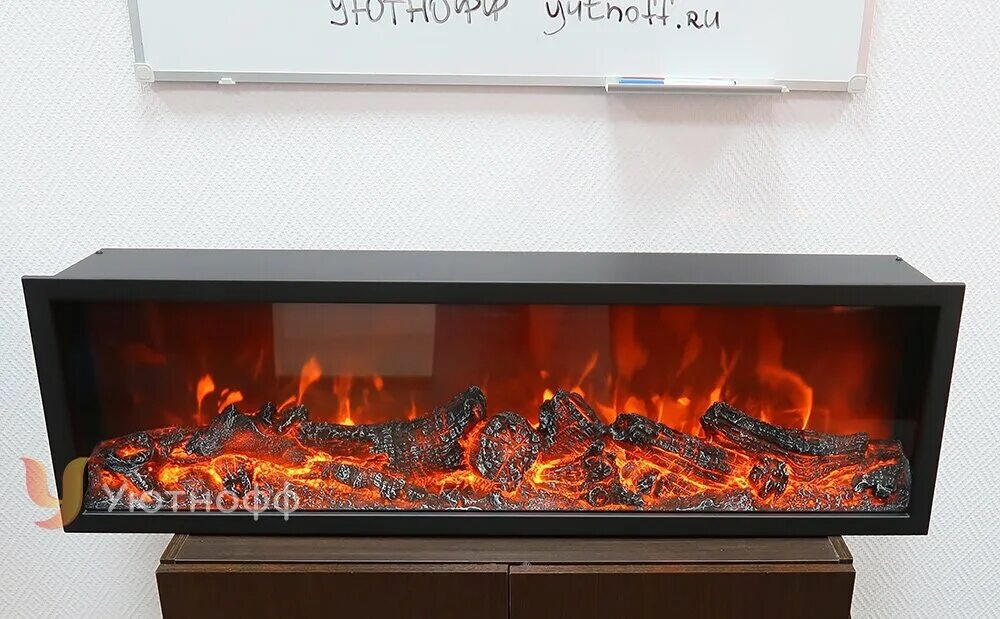 УЮТНОФФ yutnoff.ru
Уютнофф